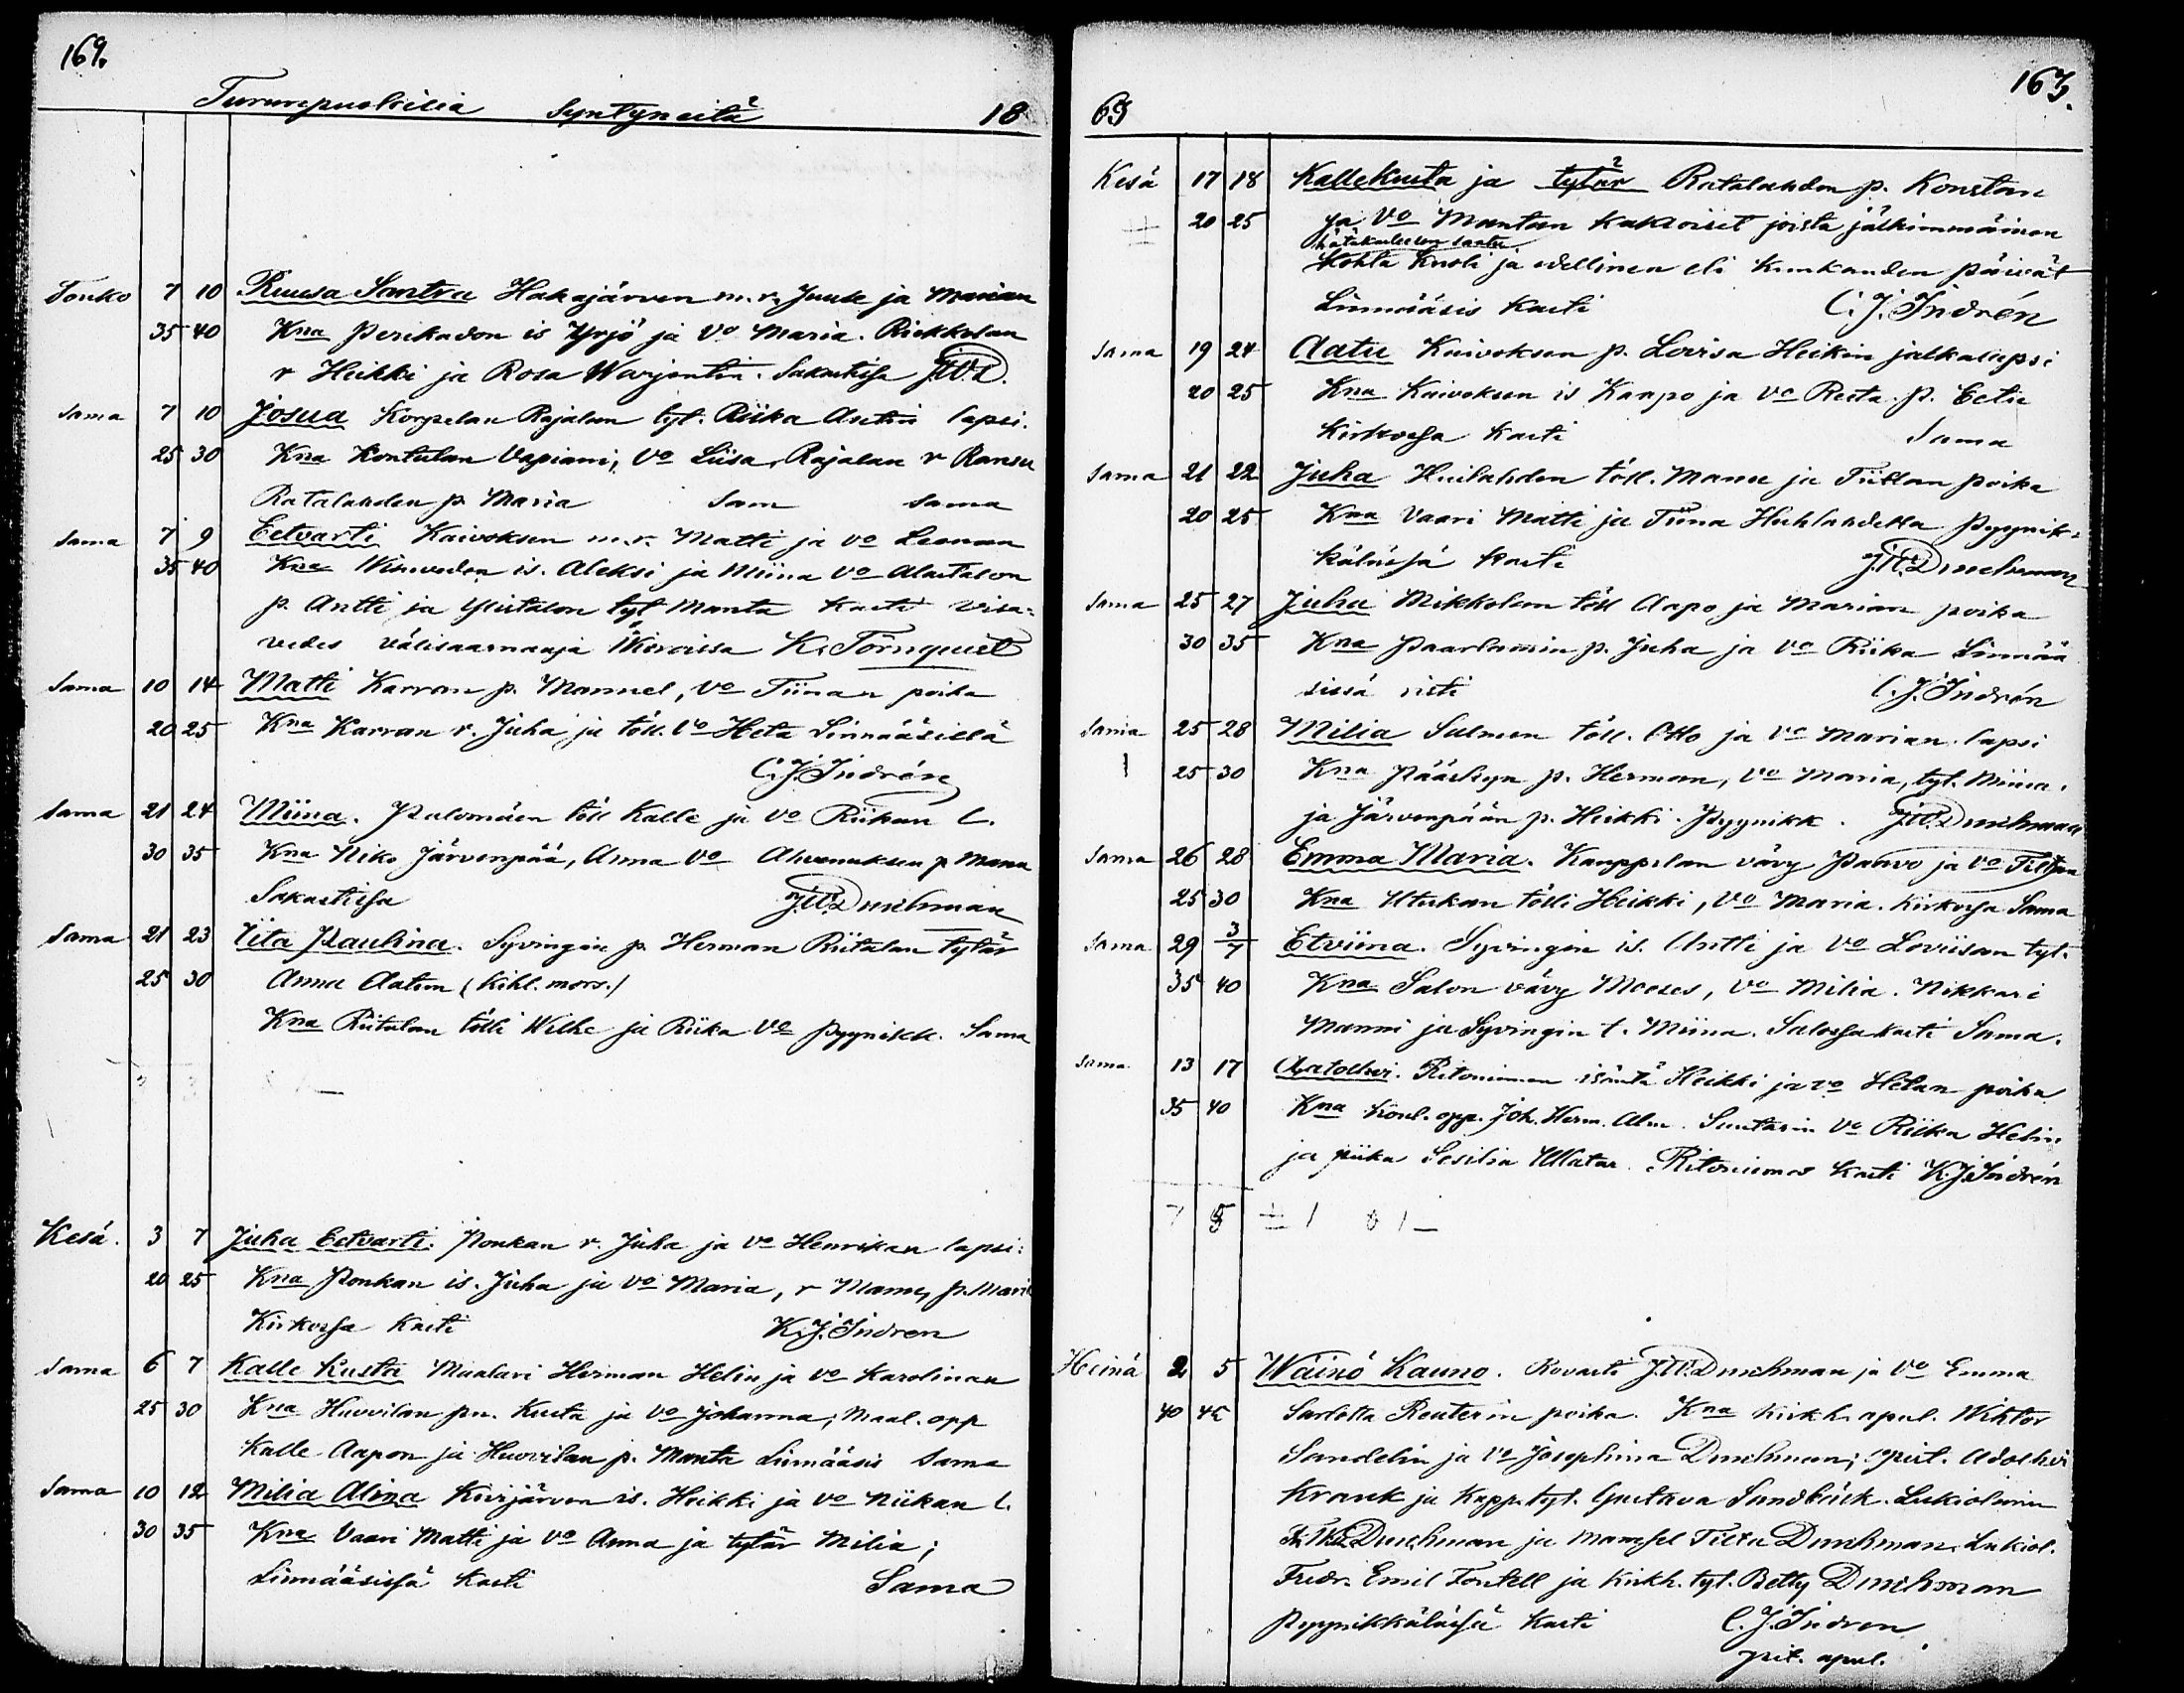 169.
Turunpuolisia Syntyneitä 18
Touko 7 10 Ruusa Santra Hakajärven m.r. Juuse ja Marian
35 40 Kna Perikadon is Yrjö ja Vo Maria. Riekkolan
r Heikki ja Rosa Warjentin. Sakastissa J.W.D.
Sama 7 10 Josua Korpelan Rajalan tyt. Riika Antin lapsi.
25 30 Kna Kontulan Vapiani, Vo Liisa, Rajalan r Ransu
Ratalahden p Maria Sam Sama
Sama 7 9 Eetvarti Kaivoksen m.r. Matti ja vo Leenan
35 40 Kna is. Aleksi ja Miina Vo Alastalon
p. Antti ja Ylistalon tyt Manta Kasti Visa=
vedes välisaarnaaja K. Törnquist
Sama 10 14 Matti Karran p. Mannel, Vo Tiinan poika
20 25 Kna Karran r. Juha ja töll. Vo Heta Linnääsillä
C. J. Indrén
Sama 21 24 Miina. Palomäen töll Kalle ja Vo Riikan l.
30 35 Kna Niko Järvenpää, Anna Vo Ahvenuksen p Manu
Sakastissa J.W. Durchman
Sama 21 23 Iita Paulina. Syvingin p. Herman Riitalan tytär
25 30 Anna Aatun (Kihl. mors.)
Kna Riitalan tölli Wilhe ja Riika Vo Pyynikk. Sama
Kesä. 3 7 Juha Eetvarti. Ponkan r. Juha ja Vo Henrikan lapsi:
20 25 Kna Ponkan is. Juha ja Vo Maria, r Manu, p. Mari
Kirkossa Kasti K. J. Indren
Sama 6 7 Kalle Kusta Maalari Herman Helin ja Vo Karolinan
25 30 Kna Huovilan pu. Kusta ja Vo Johanna; Maal. opp
Kalle Aapon ja Huovilan p. Manta Linnääsis Sama
Sama 10 12 Milia Alina Kivijärven is. Heikki ja Vo Niikan l.
30 35 Kna Vaari Matti ja Vo Anna ja tytär Milia;
Linnääsissä Kasti Sama
163.
69
Kesä 17 18 Kallekusta ja tytär Ratalahden p. Konstan
20 25 ja Vo Mantan Kaksoiset joista jälkimmäinen
hätäkasteen saatu
Kohta Kuoli ja edellinen eli Kuukauden päivät
Linnääsis Kasti C. J. Indrén
Sama 19 24 Aatu Kaivoksen p. Lovisa Heikin jalkalapsi
20 25 Kna Kaivoksen is Kaapo ja Vo Resta. p. Eetu
Kirkossa Kasti Sama
Sama 21 22 Juha Huhlahden töll. Manu ja Tiltan poika
20 25 Kna Vaari Matti ja Tiina Huhlahdella Pyynik=
kälässä Kasti J.W. Durchman
Sama 25 27 Juha Mikkolan töll Aapo ja Marian poika
30 35 Kna p. Juha ja Vo Riika Linnää
sissä risti C. J. Indrén
Sama 25 28 Milia Salmen töll. Otto ja Vo Marian lapsi
25 30 Kna Pääskyn p. Herman, Vo Maria, tyt. Miina.
ja Järvenpään p. Heikki. Pyynikk. J.W. Durchman
Sama 26 28 Emma Maria. Kauppilan vävy Paavo ja Vo Tiltan
25 30 Kna Uttukan tölli Heikki, Vo Maria. Kirkossa Sama
Sama 29 3/7 Etviina. Syvingin is. Antti ja Vo Loviisan tyt.
35 40 Kna Salon vävy Mooses, Vo Milia. Nikkari
Manni ja Syvingin t. Miina. Salossa kasti Sama.
Sama 13 17 Aatolhvi. Ritoniemen isäntä Heikki ja vo Hetan poika
35 40 Kna Koul. opp. Joh. Herm. Alm. Suutarin Vo Riika Helin
ja piika Sesilia Ullatar. Ritoniemes Kasti K. J. Indrén
Heinä 2 5 Wäinö Kauno. Rovasti J.W. Durchman ja Vo Emma
40 45 Sarlotta Reuterin poika. Kna kirkh. apul. Wiktor
Sandelin ja Vo Josephina Durchman; pit. Adolhvi
Kranck ja Kapp. tyt. Gustava Sundbäck. Lukiolainen
Durchman ja Mamsel Tilta Durchman. Lukiol.
Fredr. Emil Fontell ja Kirkh. tyt. Betty Durchman
Pyynikkälässä Kasti C. J. Indren
pit. apul.